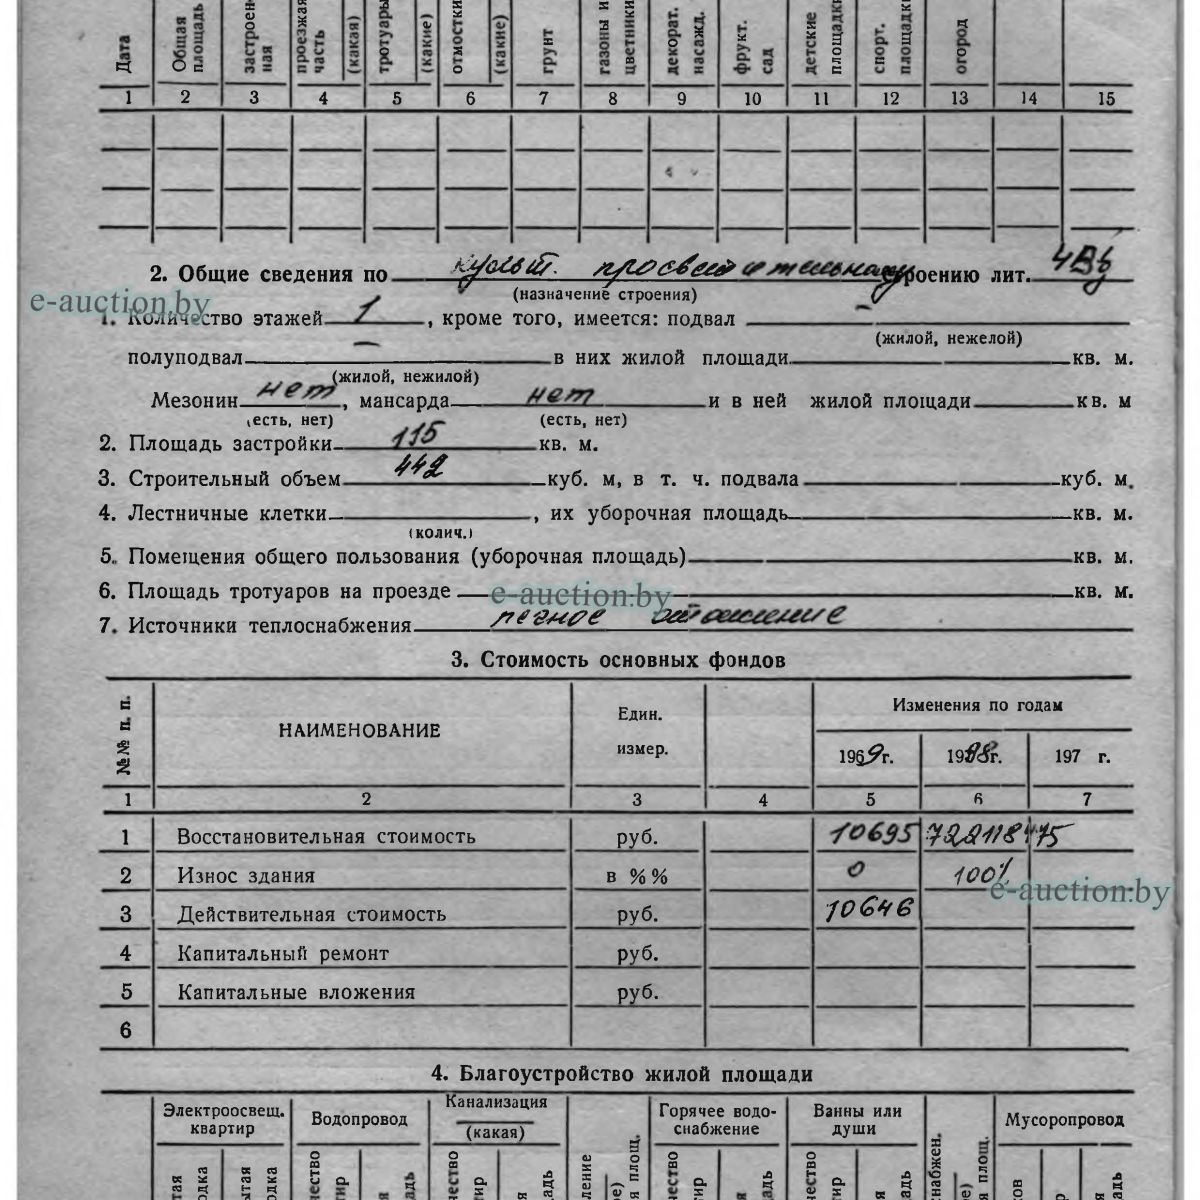 Дата Общая площадь застроен- ная проезжая часть (какая) тротуары (какие) отмостки (какие) грунт газоны и цветники декорат. насажд. фрукт. сад детские площадки спорт. площадки огород
1 2 3 4 5 6 7 8 9 10 11 12 13 14 15
2. Общие сведения по культ. просветительному строению лит.
(назначение строения)
e-auction.by
1. Количество этажей 1, кроме того, имеется: подвал —
(жилой, нежелой)
полуподвал — в них жилой площади кв. м.
(жилой, нежилой)
Мезонин нет, мансарда нет и в ней жилой площади кв. м
(есть, нет) (есть, нет)
2. Площадь застройки 115 кв. м.
3. Строительный объем 442 куб. м, в т. ч. подвала куб. м.
4. Лестничные клетки , их уборочная площадь кв. м.
(колич.)
5. Помещения общего пользования (уборочная площадь) кв. м.
6. Площадь тротуаров на проезде кв. м.
e-auction.by
7. Источники теплоснабжения печное отопление
3. Стоимость основных фондов
№№ п. п. НАИМЕНОВАНИЕ Един. измер. Изменения по годам
1969г. 1998г. 197 г.
1 2 3 4 5 6 7
1 Восстановительная стоимость руб. 10695 722118475
2 Износ здания в %% 0 100%
e-auction.by
3 Действительная стоимость руб. 10646
4 Капитальный ремонт руб.
5 Капитальные вложения руб.
6
4. Благоустройство жилой площади
Электроосвещ. квартир Водопровод Канализация (какая) Горячее водо- снабжение Ванны или души Мусоропровод